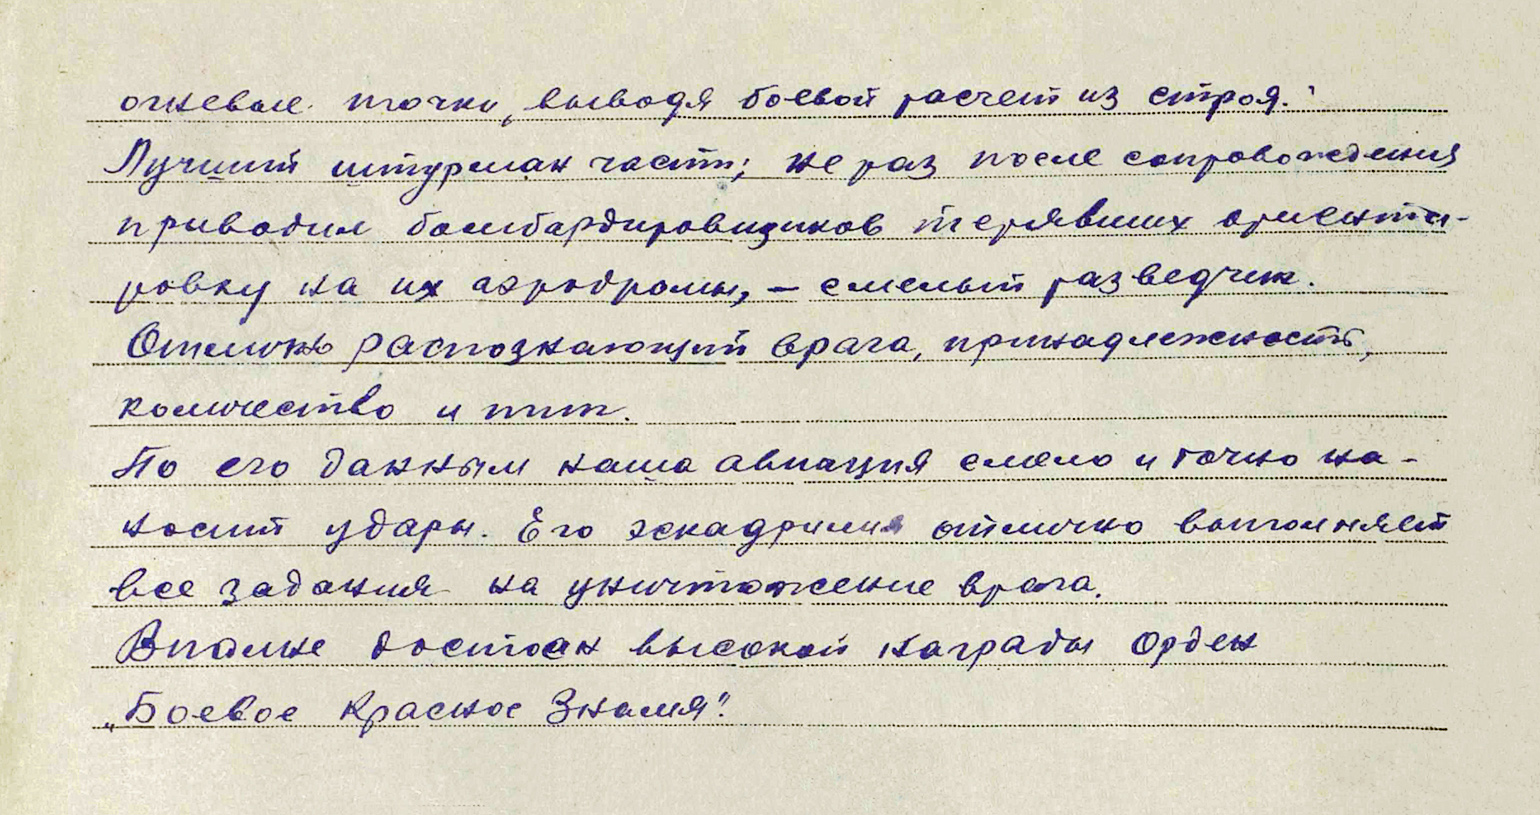 огневые точки, выводя боевой расчет из строя.
Лучший штурман части; не раз после сопровождения
приводил бомбардировщиков терявших ориенти-
ровку на их аэродромы, – смелый разведчик.
Отлично распознающий врага, принадлежность,
количество и т.п.
По его данным наша авиация смело и точно на-
носит удары. Его эскадрилия отлично выполняет
все задания на уничтожение врага.
Вполне достоин высокой награды Орден
„Боевое Красное Знамя".